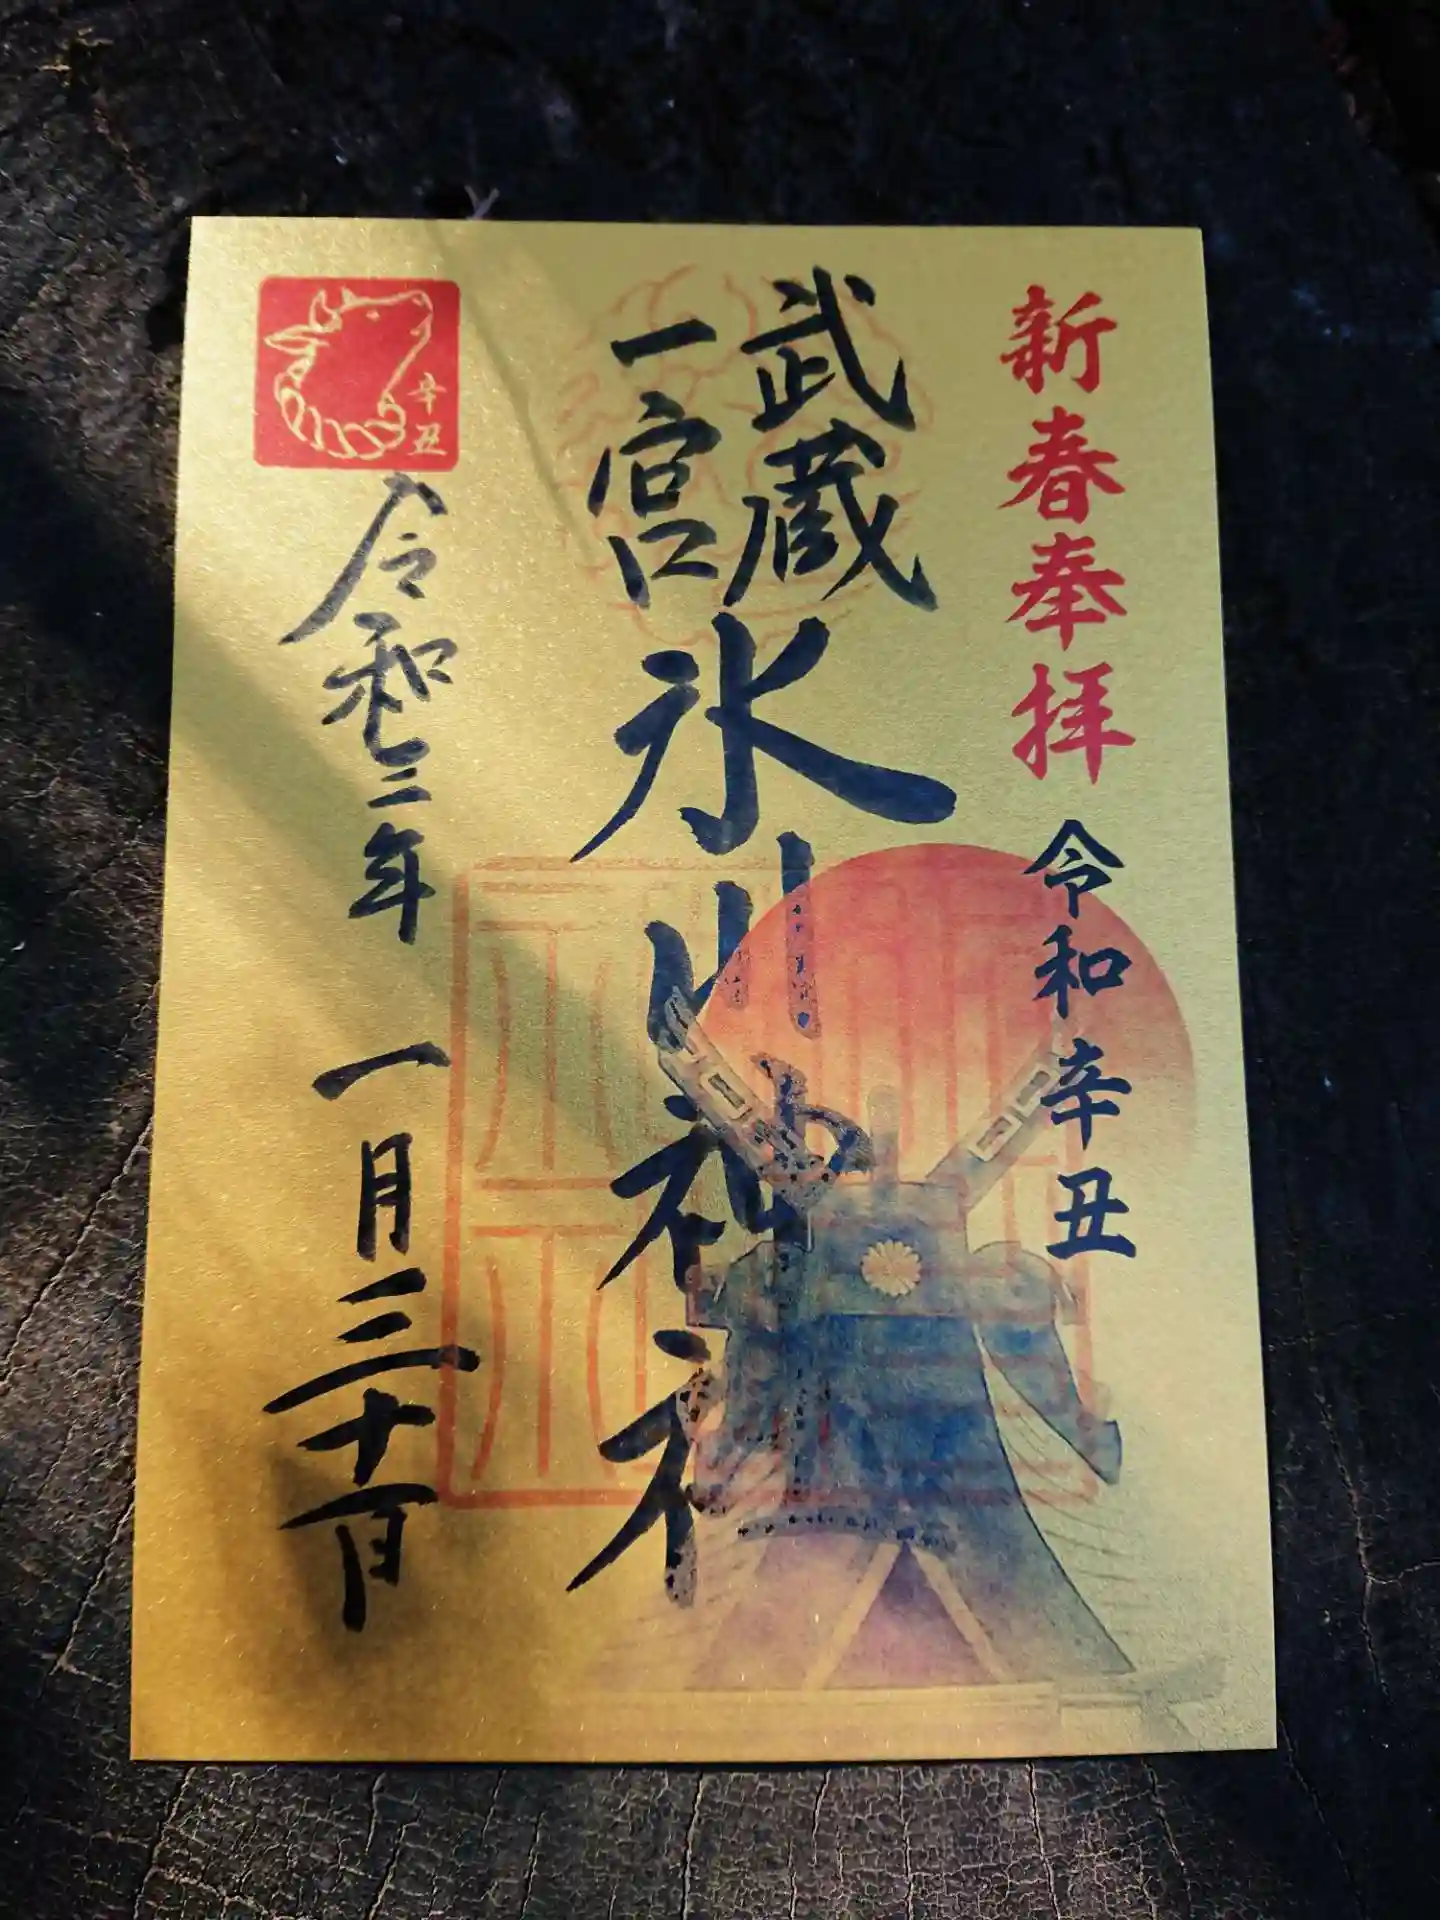 新春奉拝 令和辛丑
武蔵
一宮
氷川神社
辛丑
令和三年 一月三十一日